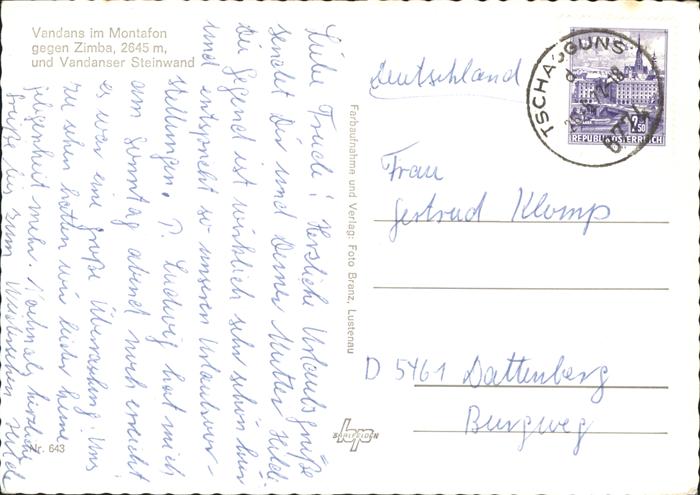 Vandans im Montafon
gegen Zimba, 2645 m,
und Vandanser Steinwand
Liebe Trudi! Herzliche Urlaubsgrüße
sendet Dir und Deiner Mutter Hilde.
Die Gegend ist wirklich sehr schön hier
und entspricht so unseren Urlaubsvor-
stellungen. P. Ludwig hat mich
am Sonntag abend noch erreicht
es war eine große Überraschung! Uns
zu sehen hatten wir leider keine
gelegenheit mehr. Nochmals herzliche
Grüße bis zum Hilde
Nr. 643
Farbaufnahme und Verlag: Foto Branz, Lustenau
Deutschland
TSCHAGGUNS
6774
2.50
REPUBLIK ÖSTERREICH
Frau
Gertrud Klomp
D 5461 Dattenberg
Burgweg